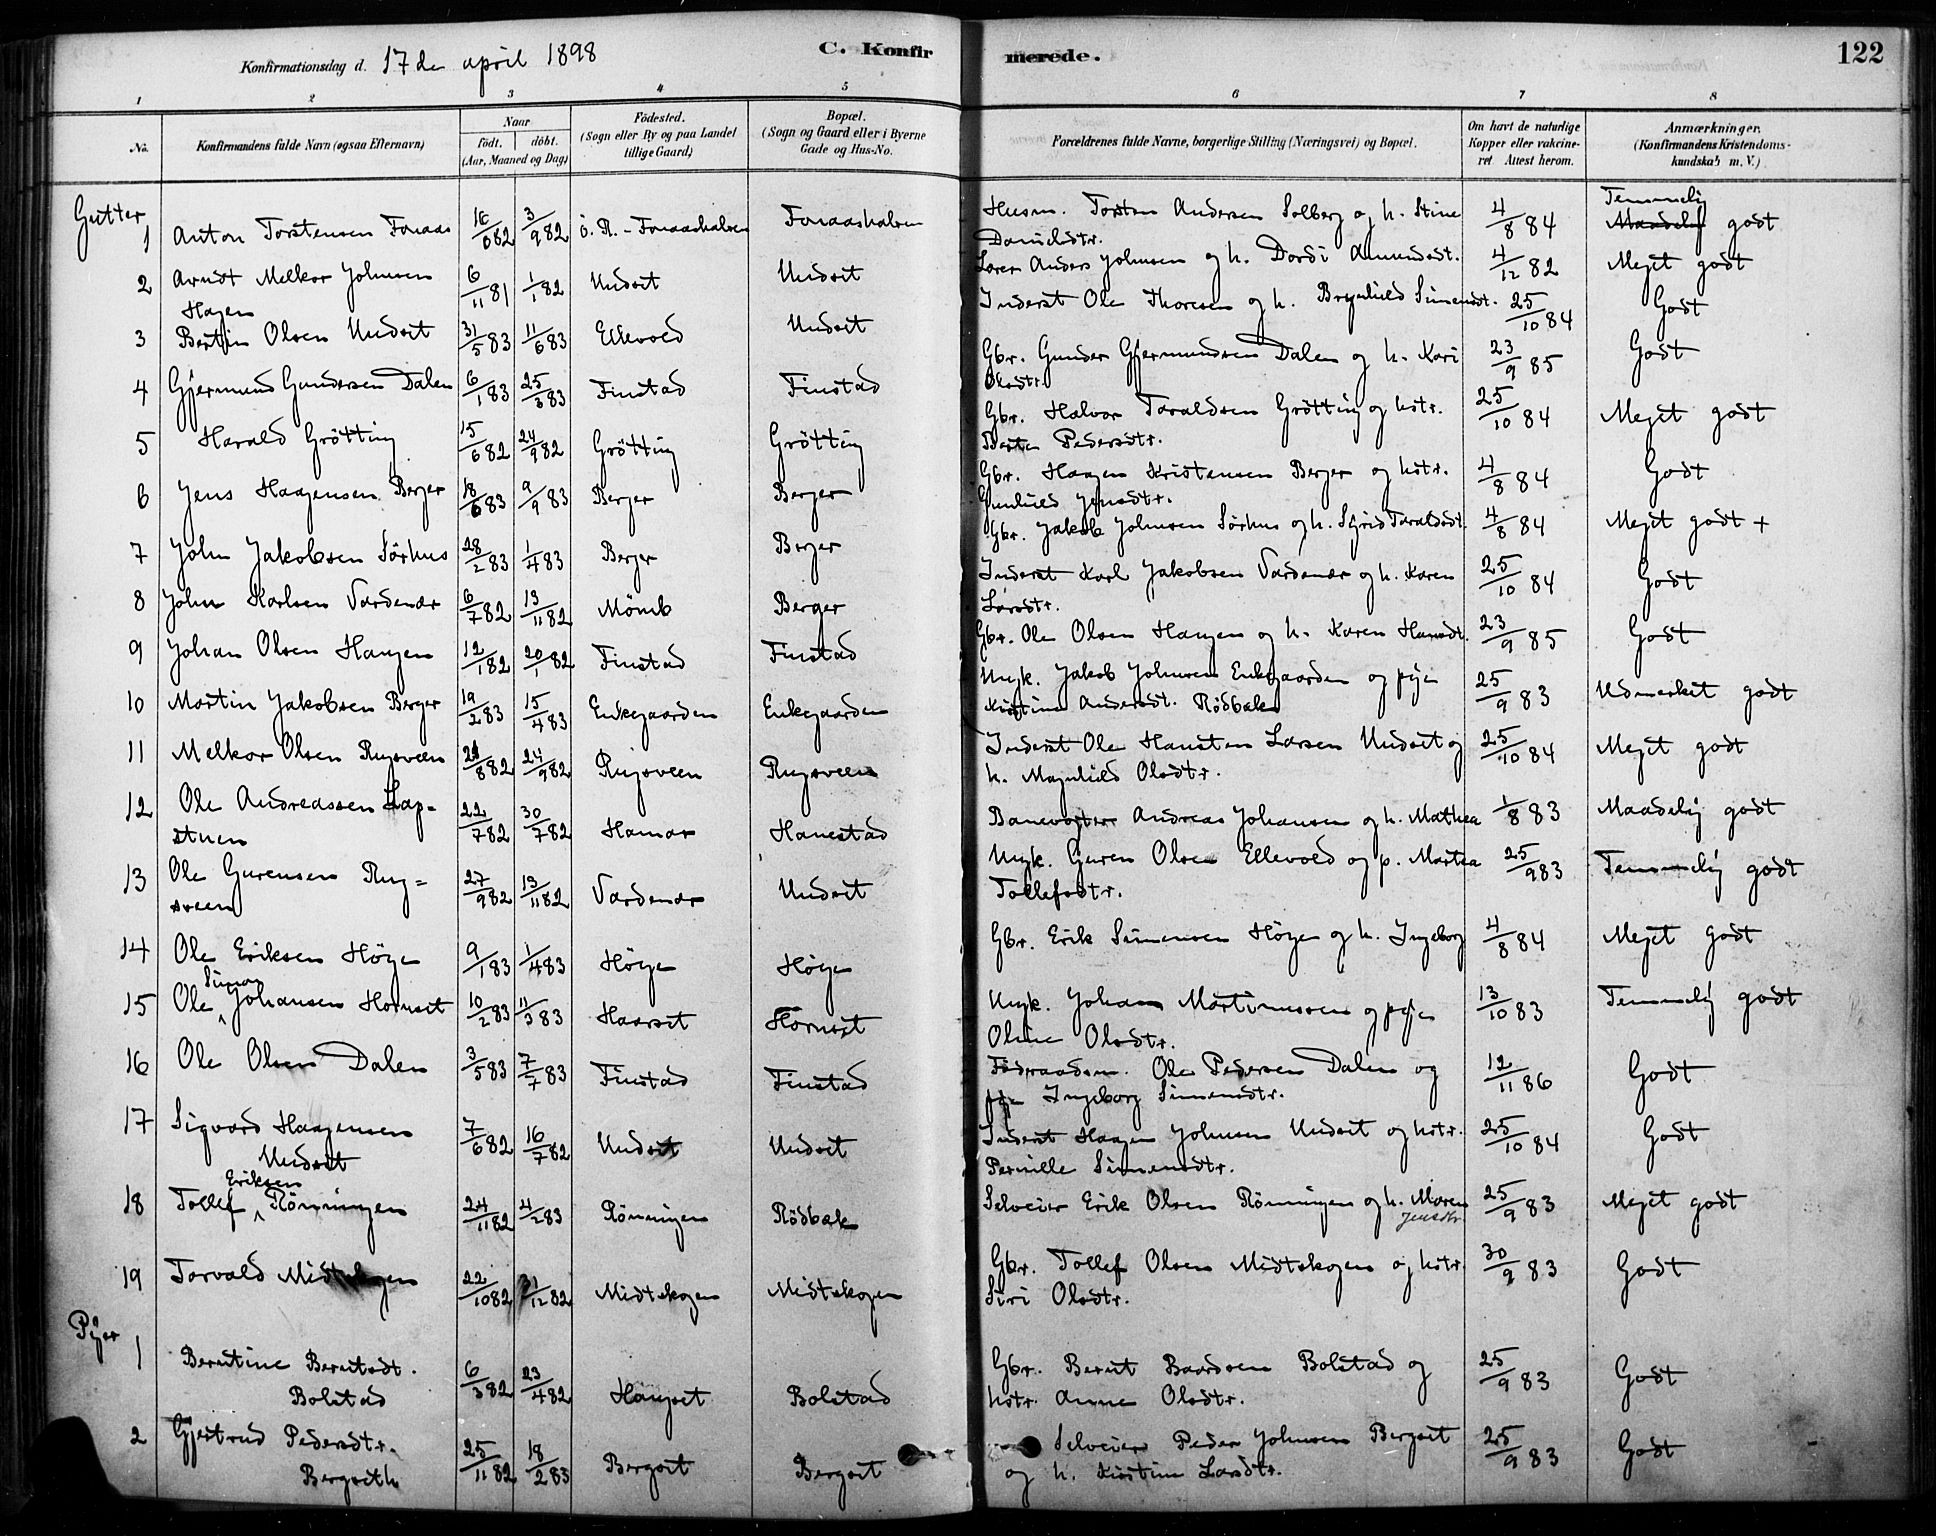 Konfirmationsdag d. 17de april 1898 C. Konfirmerede. 122
1 2 3 4 5 6 7 8
No. Konfirmandens fulde Navn (ogsaa Efternavn) Naar født. døbt. (Aar, Maaned og Dag) Fødested. (Sogn eller By og paa Landet tillige Gaard) Bopæl. (Sogn og Gaard eller i Byerne Gade og Hus-No. Forældrenes fulde Navne, borgerlige Stilling (Næringsvei) og Bopæl. Om havt de naturlige Kopper eller vakcineret. Attest herom. Anmærkninger. (Konfirmandens Kristendomskundskab m. V.)
Gutter
1 Anton Torstensen Fonaas 16/6 82 3/9 82 Ö. R. - Fonaashalsen Fonaashalsen Husm. Torsten Andersen Solberg og h. Stine Danielsdtr. 4/8 84 Maadelig Temmelig godt
2 Arndt Melkor Johnsen Hagen 6/11 81 1/1 82 Undset Undset Anders Johnsen og h. Dordi Amundsdt. 4/12 82 Meget godt
3 Bertin Olsen Undset 31/5 83 11/6 83 Ellevold Undset Inderst Ole Thoresen og h. Brynhild Simensdt. 25/10 84 Godt
4 Gjermund Gundersen Dalen 6/1 83 25/3 83 Finstad Finstad Gbr. Gunder Gjermundsen Dalen og h. Kari Olsdtr. 23/9 85 Godt
5 Harald Grötting 15/6 82 24/9 82 Grötting Grötting Gbr. Halvor Taraldsen Grötting og hstr. Berte Pedersdtr. 25/10 84 Meget godt
6 Jens Haagensen Berger 18/6 83 9/9 83 Berger Berger Gbr. Haagen Kristensen Berger og hstr. Gunhild Jensdtr. 4/8 84 Godt
7 John Jakobsen Sörhus 28/2 83 1/4 83 Berger Berger Gbr. Jakob Johnsen Sörhus og h. Sigrid Taraldsdt. 4/8 84 Meget godt +
8 John Karlsen Vardenær 6/7 82 13/11 82 Mömb Berger Inderst Karl Jakobsen Vardenær og h. Karen Larsdtr. 25/10 84 Godt
9 Johan Olsen Haugen 12/1 82 20/1 82 Finstad Finstad Gbr. Ole Olsen Haugen og h. Karen Hansdt. 23/9 85 Godt
10 Martin Jakobsen Berger 19/2 83 15/4 83 Enkegaarden Enkegaarden Ungk. Jakob Johnsen Enkegaarden og pige Kristine Andersdt. Rödbæk 25/9 83 Udmerket godt
11 Melkor Olsen Rugsveen 22/8 82 24/9 82 Rugsveen Rugsveen Inderst Ole Hansten Larsen Undset og h. Magnhild Olsdtr. 25/10 84 Meget godt
12 Ole Andreassen Lapstuen 22/7 82 30/7 82 Hamar Hanestad Banevogter Andreas Johansen og h. Mathea 1/8 83 Maadelig godt
13 Ole Gurensen Rugsveen 27/9 82 13/11 82 Vardenær Undset Ungk. Guren Olsen Ellevold og p. Martea Tollefsdtr. 25/9 83 Temmelig godt
14 Ole Eriksen Höye 9/1 83 1/4 83 Höye Höye Gbr. Erik Simensen Höye og h. Ingeborg 4/8 84 Meget godt
15 Ole Simon Johansen Hornset 10/2 83 11/3 83 Haarset Hornset Ungk. Johan Martinussen og pige Oline Olsdtr. 13/10 83 Temmelig godt
16 Ole Olsen Dalen 3/5 83 7/7 83 Finstad Finstad Födraadsm. Ole Pedersen Dalen og pige Ingeborg Simensdtr. 12/11 86 Godt
17 Sigvard Haagensen Undset 7/6 82 16/7 82 Undset Undset Inderst Haagen Johnsen Undset og hstr. Pernille Simensdtr. 25/10 84 Godt
18 Tollef Eriksen Rönningen 24/11 82 4/2 83 Rönningen Rödbæk Selveier Erik Olsen Rönningen og h. Maren Jensdtr. 25/9 83 Meget godt
19 Torvald Midtskogen 22/10 82 31/12 82 Midtskogen Midtskogen Gbr. Tollef Olsen Midtskogen og hstr. Siri Olsdtr. 30/9 83 Godt
Piger
1 Berntine Berntsdt. Bolstad 6/3 82 23/4 82 Haugset Bolstad Gbr. Bernt Baardsen Bolstad og hstr. Anne Olsdtr. 25/9 83 Godt
2 Gjertrud Pedersdtr. Bergseth 25/11 82 18/2 83 Bergset Bergset Selveier Peder Johnsen Bergset og h. Kirstine Larsdtr. 25/9 83 Godt